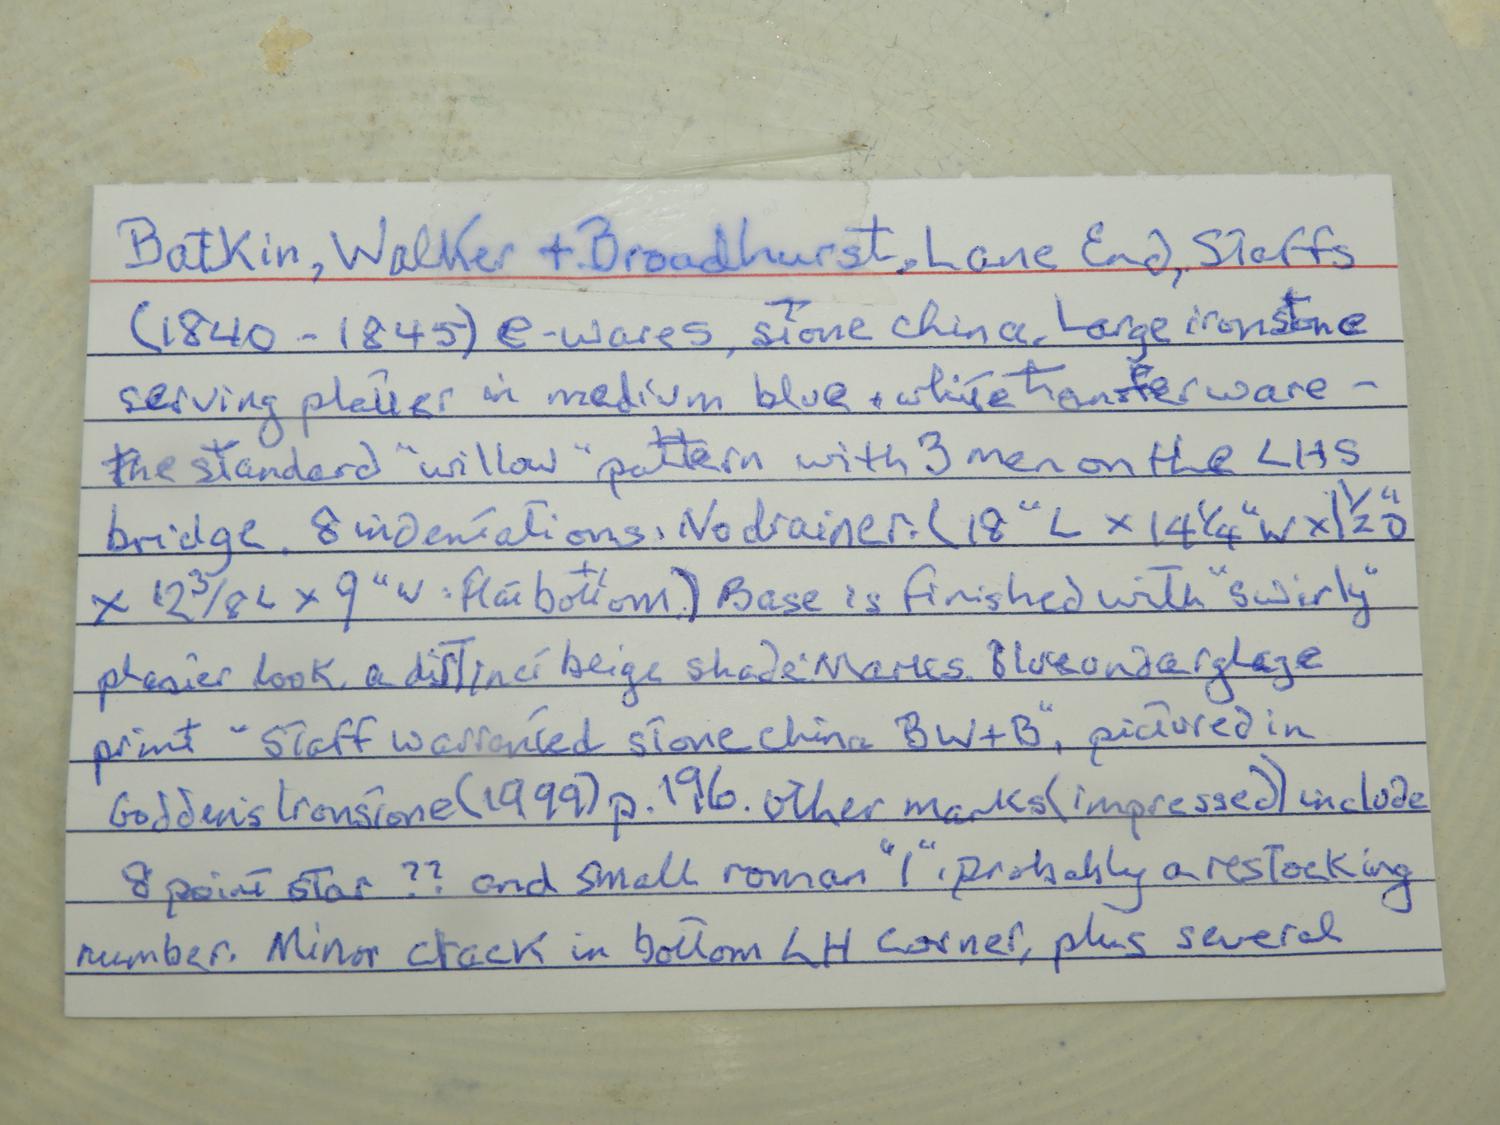 Batkin, Walker + Broadhurst, Lane End, Staffs
(1840 - 1845) e-wares, stone china. Large ironstone
serving platter in medium blue + white transfer ware -
the standard "willow" pattern with 3 men on the LHS
bridge. 8 indentations. No drainer. (18" L x 14 1/4" W x 1 1/2" D
x 12 3/8 L x 9" W : flat bottom.) Base is finished with "swirly"
plaster look, a distinct beige shade. Marks. Blue underglaze
print "Staff warranted stone china BW+B", pictured in
Godden's Ironstone (1999) p. 196. Other marks (impressed) include
8 point star ?? and small roman "I", probably a restocking
number. Minor crack in bottom LH corner, plus several